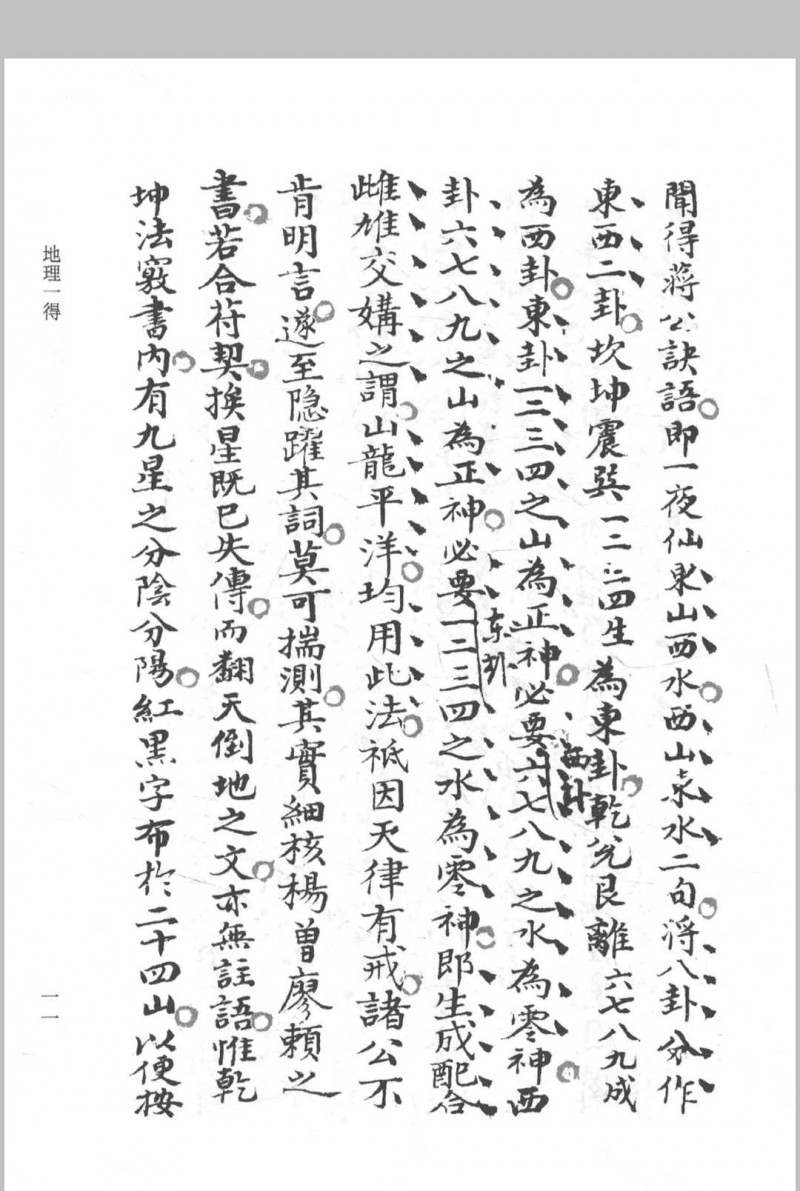 聞得蔣公訣語即一夜仙東山西水西山東水二句將八卦分作
東西二卦坎坤震巽一二三四生為東卦乾兌艮離六七八九成
為西卦東卦一二三四之山為正神必要六七八九之水為零神西
西卦
卦六七八九之山為正神必要一二三四之水為零神即生成配合
东卦
雌雄交媾之謂山龍平洋均用此法祇因天律有戒諸公不
肯明言遂至隐躍其詞莫可揣測其實細核楊曾廖賴之
書若合符契挨星既已失傳而翻天倒地之文亦無註語惟乾
坤法竅書內有九星之分陰分陽紅黑字布於二十四山以便按
地理一得
一一